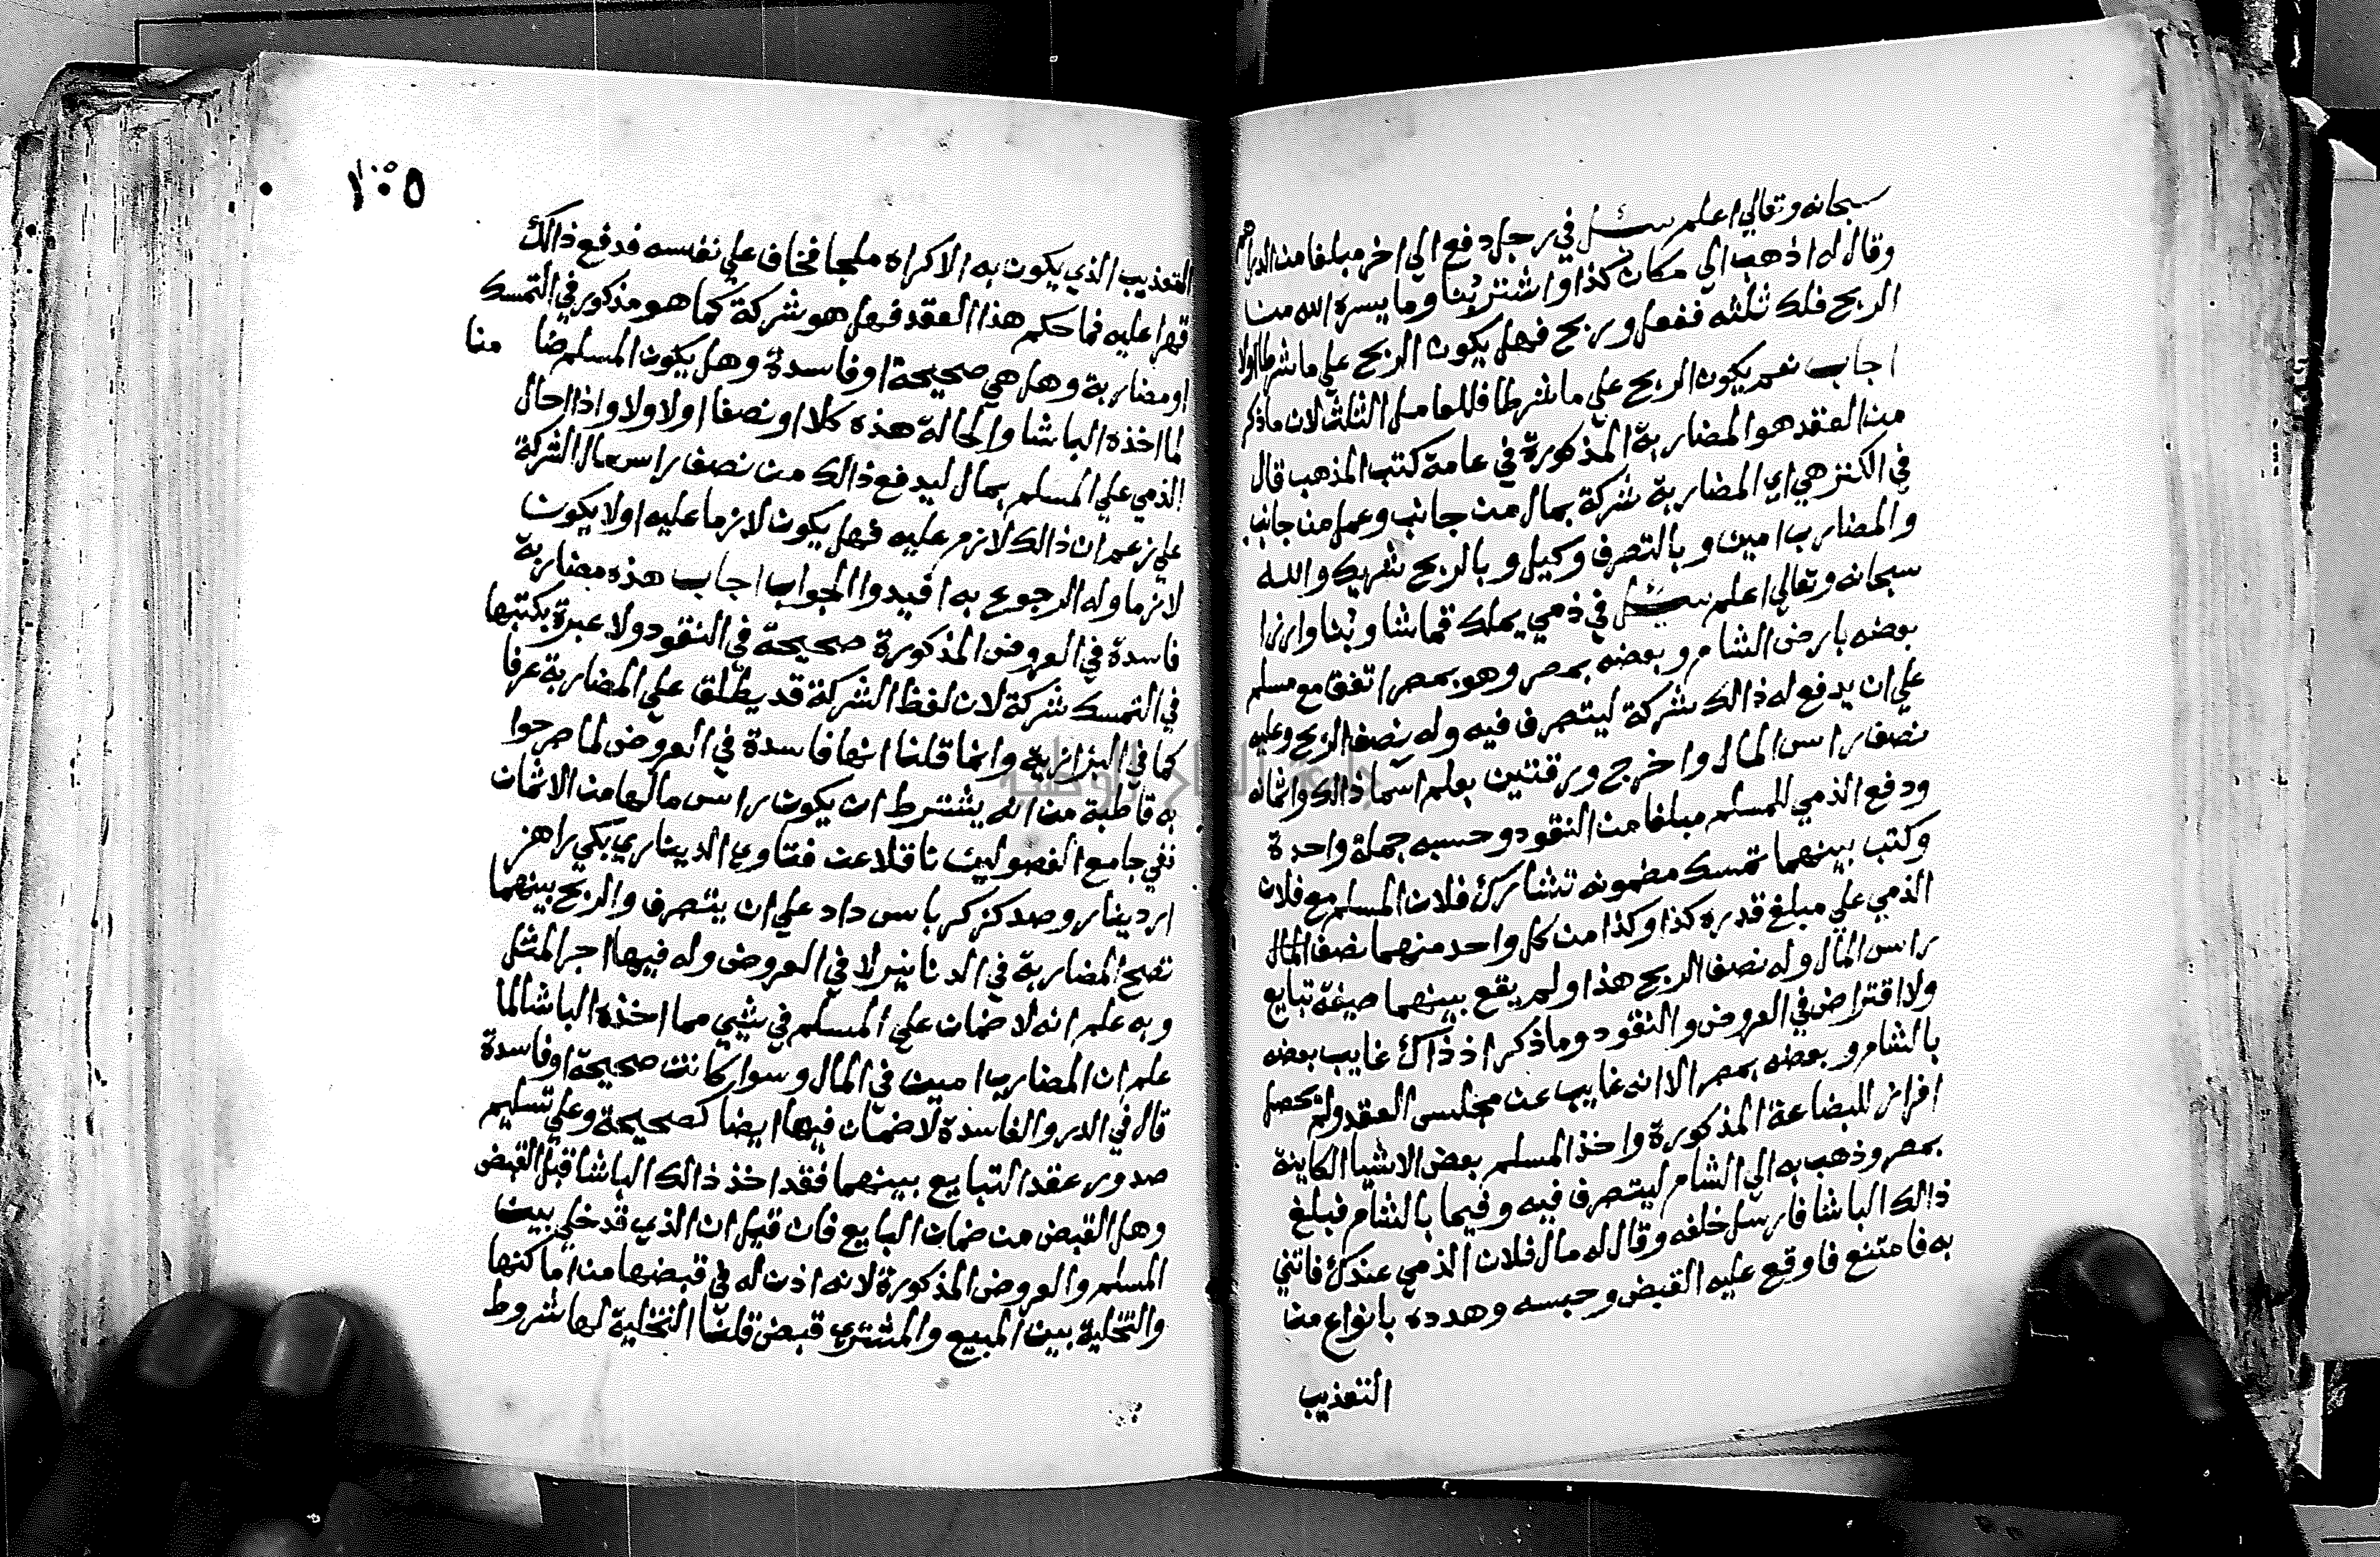 سبحانه وتعالي اعلم سئل في رجل دفع الي اخر مبلغا من الدراهم
وقال له اذهب الي مكان كذا واشتر بُنا وما يسره الله من
الربح فلك ثلثه ففعل وربح فهل يكون الربح علي ما شرطا اولا
اجاب نعم يكون الربح علي ما شرطا فللعامل الثلث لان ما ذكر
من العقد هو المضاربة المذكورة في عامة كتب المذهب قال
في الكنز هي اي المضاربة شركة بمال من جانب وعمل من جانب
والمضارب امين وبالتصرف وكيل وبالربح شريك والله
سبحانه وتعالي اعلم سئل في ذمي يملك قماشا وبُنا وارزا
بعضه بارض الشام وبعضه بمصر وهو بمصر اتفق مع مسلم
علي ان يدفع له ذالك شركة ليتصرف فيه وله نصف الربح وعليه
نصف راس المال واخرج ورقتين بعلم اسما ذالك واثمانه
ودفع الذمي للمسلم مبلغا من النقود وحسبه جملة واحدة
وكتب بينهما تمسك مضمونه تشارك فلان المسلم مع فلان
الذمي علي مبلغ قدره كذا وكذا من كل واحد منهما نصف المال
راس المال وله نصف الربح هذا ولم يقع بينهما صيغة تبايع
ولا اقتراض في العروض والنقود وما ذكر اذ ذاك غايب بعضه
بالشام وبعضه بمصر الا انه غايب عن مجلس العقد ولم يحصل
افراز للبضاعة المذكورة واخذ المسلم بعض الاشيا الكاينة
بمصر وذهب به الي الشام ليتصرف فيه وفيما بالشام فبلغ
ذالك الباشا فارسل خلفه وقال له مال فلان الذمي عندك فاتني
به فامتنع فاوقع عليه القبض وحبسه وهدده بانواع من
التعذيب
١٠٥
التعذيب الذي يكون به الاكراه ملجا فخاف علي نفسه فدفع ذالك
قهرا عليه فما حكم هذا العقد فهل هو شركة كما هو مذكور في التمسك
او مضاربة وهل هي صحيحة او فاسدة وهل يكون المسلم ضا منا
لما اخذه الباشا والحالة هذه كلا او نصفا اولا ولا واذا احال
الذمي علي المسلم بمال ليدفع ذالك من نصف راس مال الشركة
علي زعم ان ذالك لازم عليه فهل يكون لازما عليه اولا يكون
لازما وله الرجوع به افيدوا الجواب اجاب هذه مضاربة
فاسدة في العروض المذكورة صحيحة في النقود ولا عبرة بكتبها
في التمسك شركة لان لفظ الشركة قد يطلق علي المضاربة عرفا
كما في البزازية وانما قلنا انها فاسدة في العروض لما صرحوا
به قاطبة من انه يشترط ان يكون راس مالها من الاثمان
نفي جامع الفصولين ناقلا عن فتاوي الديناري بكي را هز
ار دينار وصد كز كرباس داد علي ان يتصرف والربح بينهما
تصح المضاربة في الدنانير لا في العروض وله فيها اجر المثل
وبه علم انه لا ضمان علي المسلم في شيي مما اخذه الباشا لما
علم ان المضارب امين في المال وسوا كانت صحيحة او فاسدة
قال في الدر والفاسدة لا ضمان فيها ايضا كصحيحة وعلي تسليم
صدور عقد التبايع بينهما فقد اخذ ذالك الباشا قبل القبض
وهل القبض من ضمان البايع فان قيل ان الذي قد خلي بين
المسلم والعروض المذكورة لانه اذن له في قبضها من اماكنها
والتخلية بين المبيع والمشتري قبض قلنا التخلية لها شروط